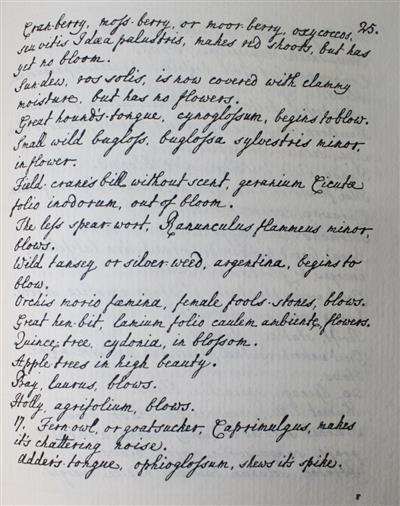 25.
Cran-berry, moss-berry, or moor-berry, oxycoccos,
seu vitis Idæa palustris, makes red shoots, but has
yet no bloom.
Sun-dew, ros solis, is now covered with clammy
moisture, but has no flowers.
Great hound's-tongue, cynoglossum, begins to blow.
Small wild bugloss, buglossa sylvestris minor,
in flower.
Field-crane's bill without scent, geranium Cicutæ
folio inodorum, out of bloom.
The less spear-wort, Ranunculus flammeus minor,
blows.
Wild tansey, or silver-weed, argentina, begins to
blow.
Orchis morio fæmina, female fools-stones, blows.
Great hen-bit, lamium folio caulem ambiente, flowers.
Quince-tree, cydonia, in blossom.
Apple-trees in high beauty.
Bay, laurus, blows.
Holly, agrifolium, blows.
17. Fern-owl, or goatsucker, Caprimulgus, makes
it's chattering noise.
Adder's-tongue, ophioglossum, shews it's spike.